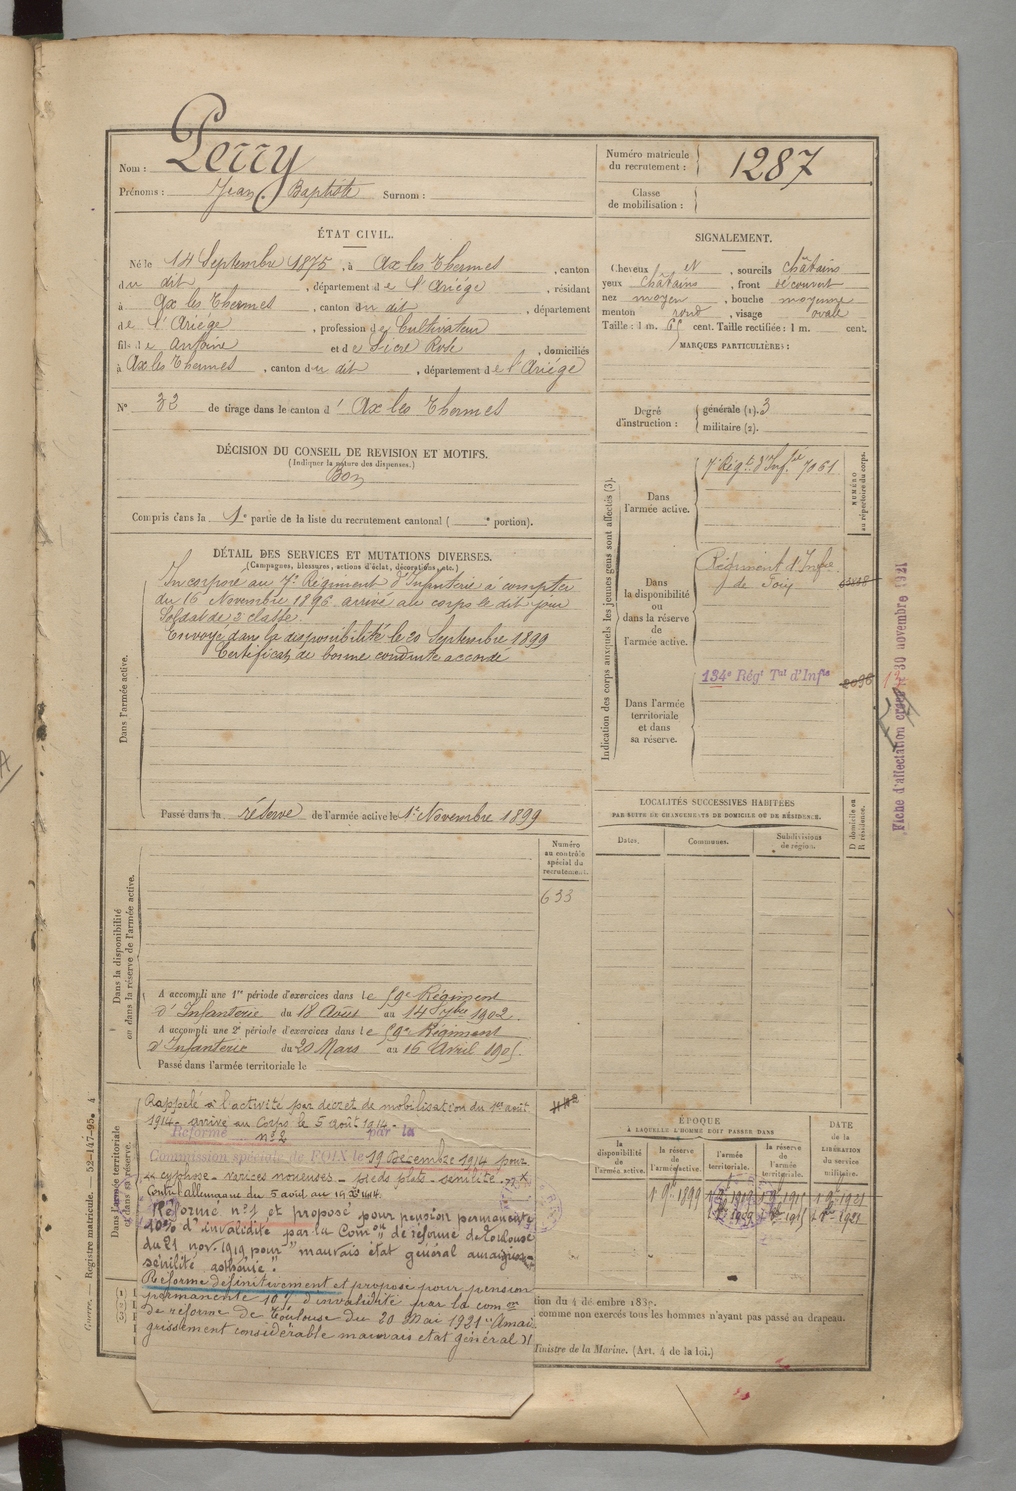 Nom : Perry
Prénoms : Jean Baptiste Surnom :
Numéro matricule du recrutement : 1287
Classe de mobilisation :
ÉTAT CIVIL.
Né le 14 Septembre 1875, à Ax les Thermes, canton
du dit, département de l'Ariége, résidant
à Ax les Thermes, canton du dit, département
de l'Ariége, profession de Cultivateur
fils de Antoine et de Sicre Rose, domiciliés
à Ax les Thermes, canton du dit, département de l'Ariége
N° 32 de tirage dans le canton d' Ax les Thermes
SIGNALEMENT.
Cheveux et, sourcils châtains
yeux châtains, front découvert
nez moyen, bouche moyenne
menton rond, visage ovale
Taille : 1 m. 65 cent. Taille rectifiée : 1 m. cent.
MARQUES PARTICULIÈRES :
Degré d'instruction : générale (1). 3
militaire (2).
DÉCISION DU CONSEIL DE REVISION ET MOTIFS.
(Indiquer la nature des dispenses.)
Bon
Compris dans la 1e partie de la liste du recrutement cantonal ( e portion).
DÉTAIL DES SERVICES ET MUTATIONS DIVERSES.
(Campagnes, blessures, actions d'éclat, décorations, etc.)
Dans l'armée active.
Incorporé au 7e Régiment d'Infanterie à compter
du 16 Novembre 1896 arrivé au corps le dit jour
Soldat de 2e classe.
Envoyé dans la disponibilité le 20 Septembre 1899
Certificat de bonne conduite accordé
Passé dans la réserve de l'armée active le 1er Novembre 1899
Indication des corps auxquels les jeunes gens sont affectés (3).
NUMÉRO au répertoire du corps.
Dans l'armée active.
7e Régt d'Infie 7061
Dans la disponibilité ou dans la réserve de l'armée active.
Régiment d'Infie
de Foix
Dans l'armée territoriale et dans sa réserve.
134e Régt Tal d'Infie 2096
Fiche d'affectation 30 novembre 1921
LOCALITÉS SUCCESSIVES HABITÉES
PAR SUITE DE CHANGEMENTS DE DOMICILE OU DE RÉSIDENCE.
Dates. Communes. Subdivisions de région. D domicile ou R résidence.
Dans la disponibilité ou dans la réserve de l'armée active.
Numéro au contrôle spécial du recrutement.
633
A accompli une 1re période d'exercices dans le 59e Régiment
d'Infanterie du 18 Août au 14 7bre 1902.
A accompli une 2e période d'exercices dans le 59e Régiment
d'Infanterie du 20 Mars au 16 Avril 1905.
Passé dans l'armée territoriale le
Dans l'armée territoriale et dans sa réserve.
Rappelé à l'activité par décret de mobilisation du 1er août
1914 - arrivé au Corps le 5 août 1914 -
Réformé n° 2 par la
Commission spéciale de FOIX le 19 Décembre 1914 pour
cyphose - varices noueuses - pieds plats - sénilité.
Contre l'Allemagne du 5 août au 19 Xbre 1914
Réformé n° 1 et proposé pour pension permanente
10% d'invalidité par la Comon de réforme de Toulouse
du 21 nov. 1919 pour "mauvais état général
sénilité asthénie".
Réformé définitivement et proposé pour pension
permanente 10% d'invalidité par la comon
de réforme de Toulouse du 20 Mai 1921 "Amai
grissement considérable mauvais état général
ÉPOQUE
À LAQUELLE L'HOMME DOIT PASSER DANS
la disponibilité de l'armée active. la réserve de l'armée active. l'armée territoriale. la réserve de l'armée territoriale.
DATE de la LIBÉRATION du service militaire.
1 9bre 1899
1 9bre 1921
tion du 4 décembre 1832.
comme non exercés tous les hommes n'ayant pas passé au drapeau.
Ministre de la Marine. (Art. 4 de la loi.)
Guerre. — Registre matricule. — 52-147-95. 4